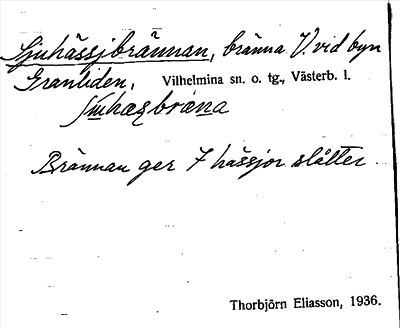 Sjuhässjbrännan, bränna V. vid byn
Granliden, Vilhelmina sn. o. tg., Västerb. l.
Brännan ger 7 hässjor slåtter
Thorbjörn Eliasson, 1936.